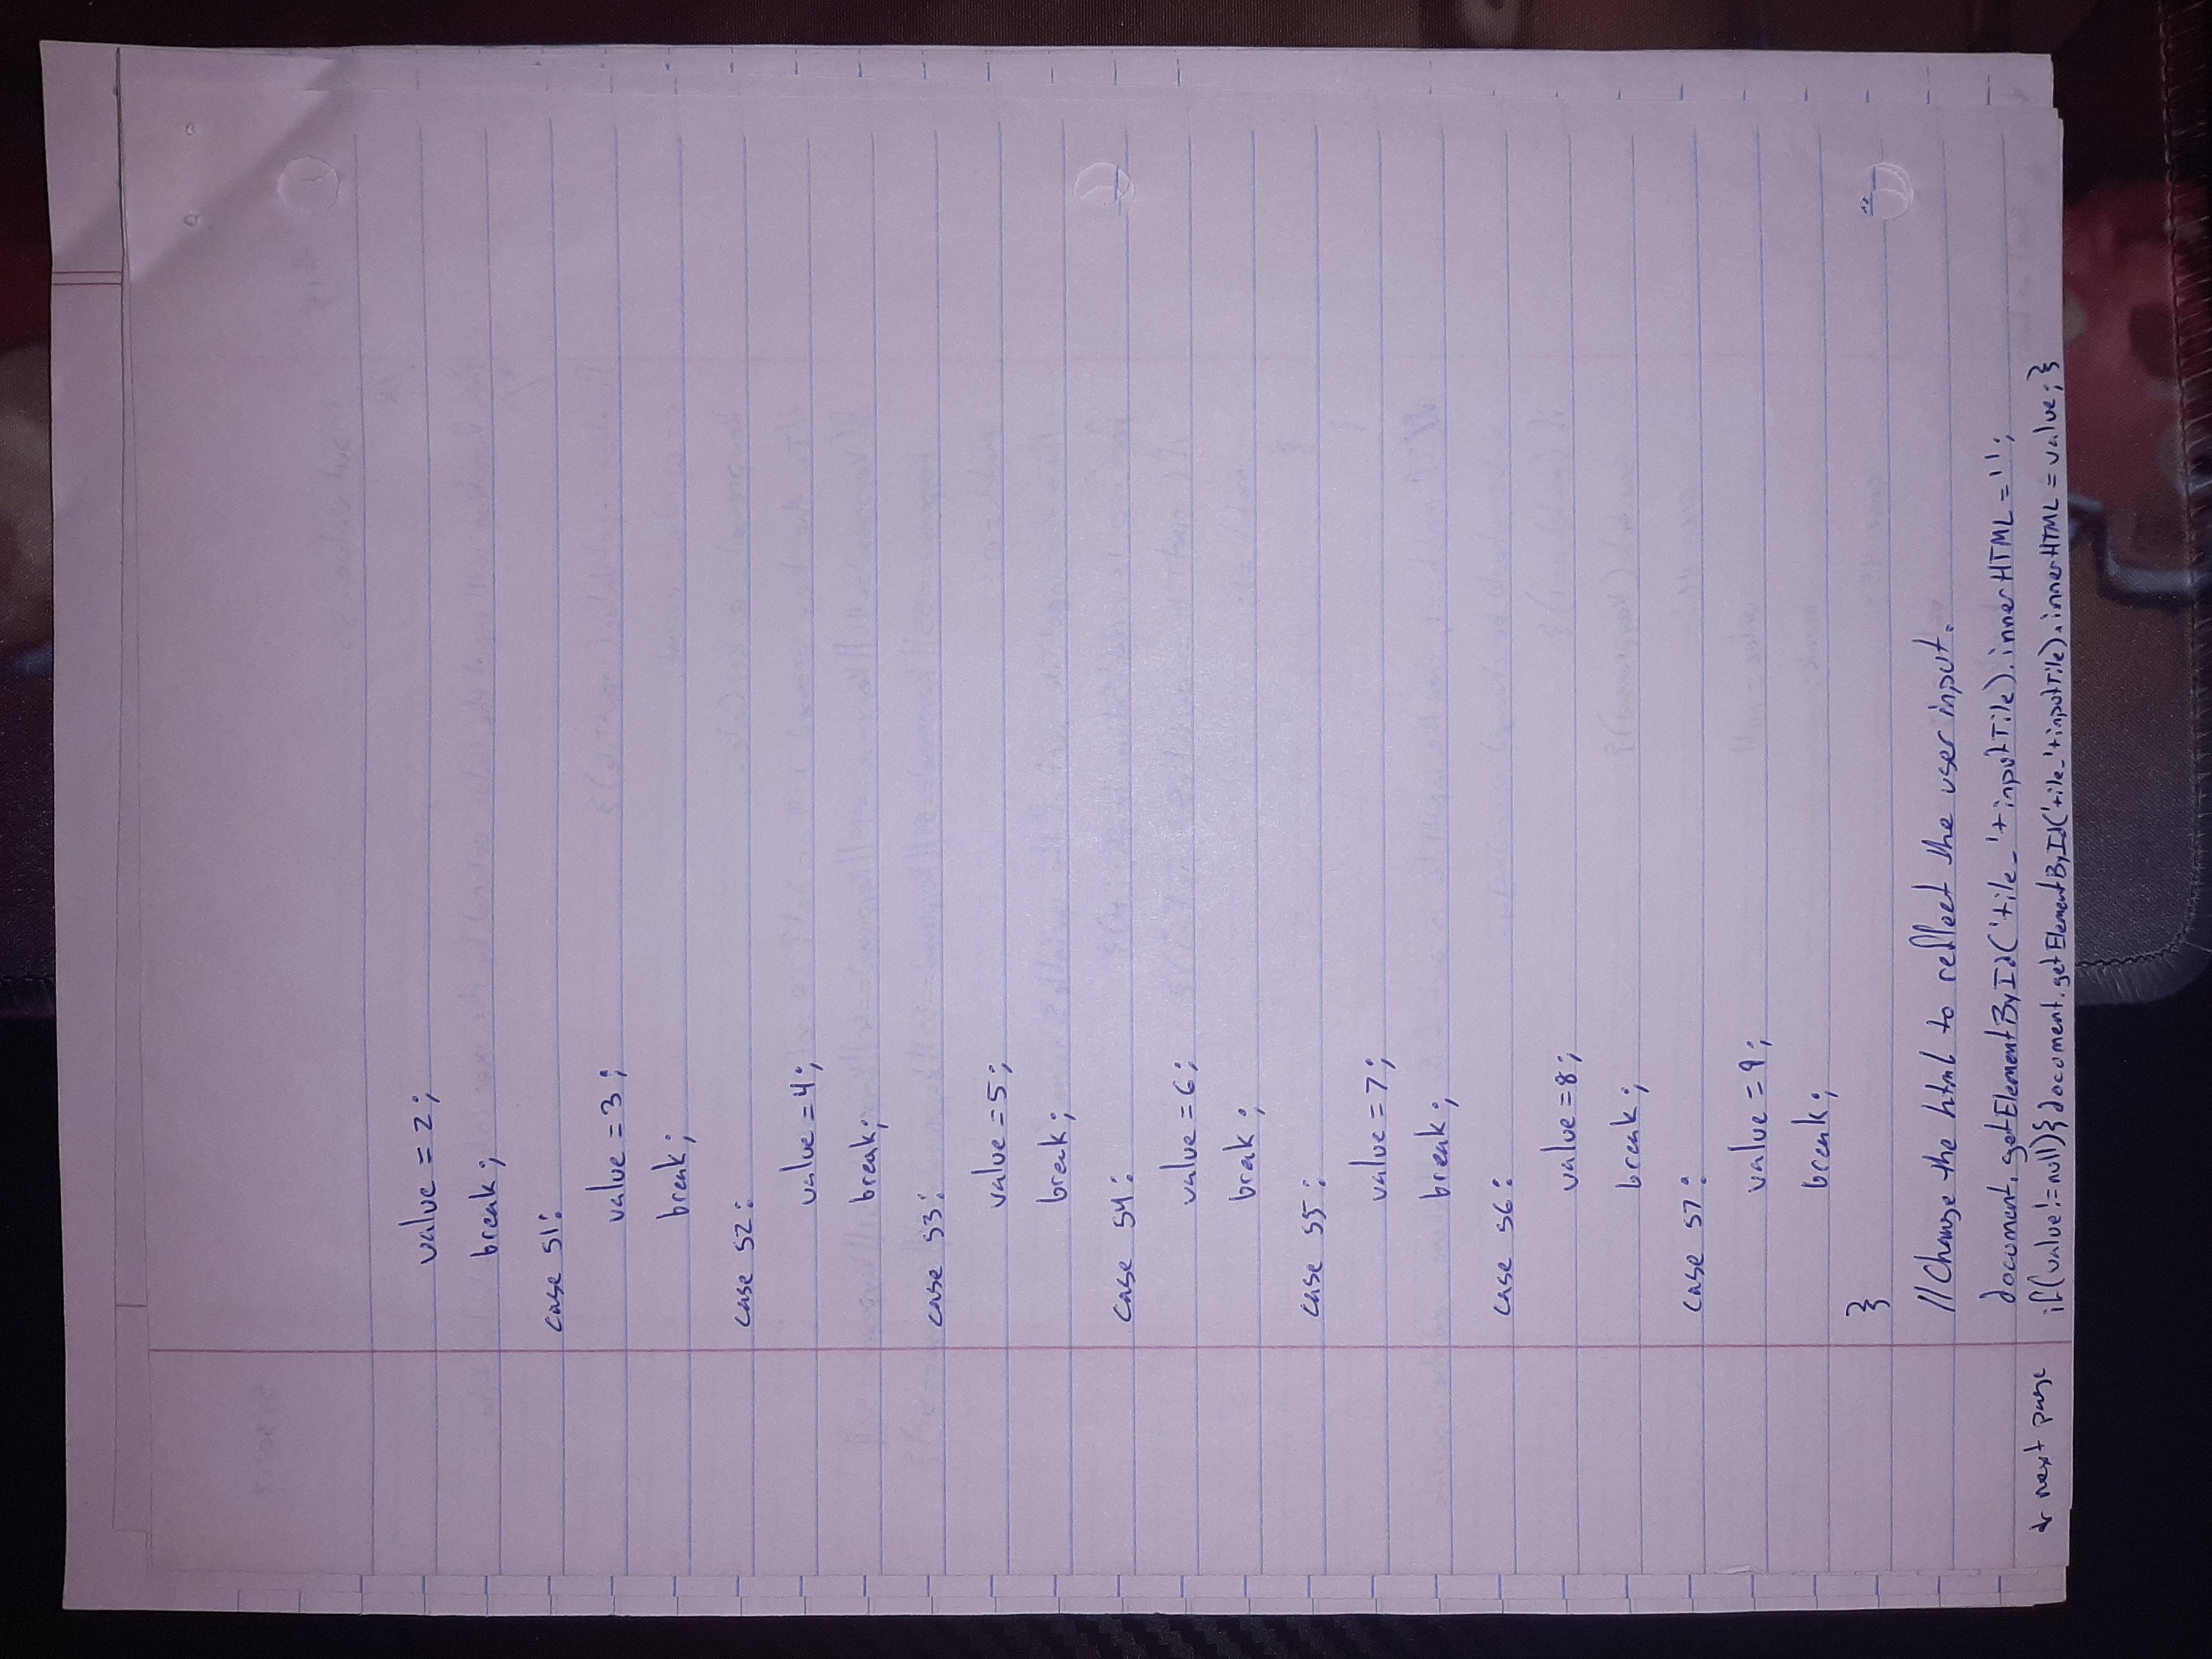 value = 2;
break;
case 51:
value = 3;
break;
case 52:
value = 4;
break;
case 53:
value = 5;
break;
case 54:
value = 6;
break;
case 55:
value = 7;
break;
case 56:
value = 8;
break;
case 57:
value = 9;
break;
}
//Change the html to reflect the user input.
document.getElementById('tile_'+inputTile).innerHTML = '';
if(value!=null){document.getElementById('tile_'+inputTile).innerHTML = value;}
next page